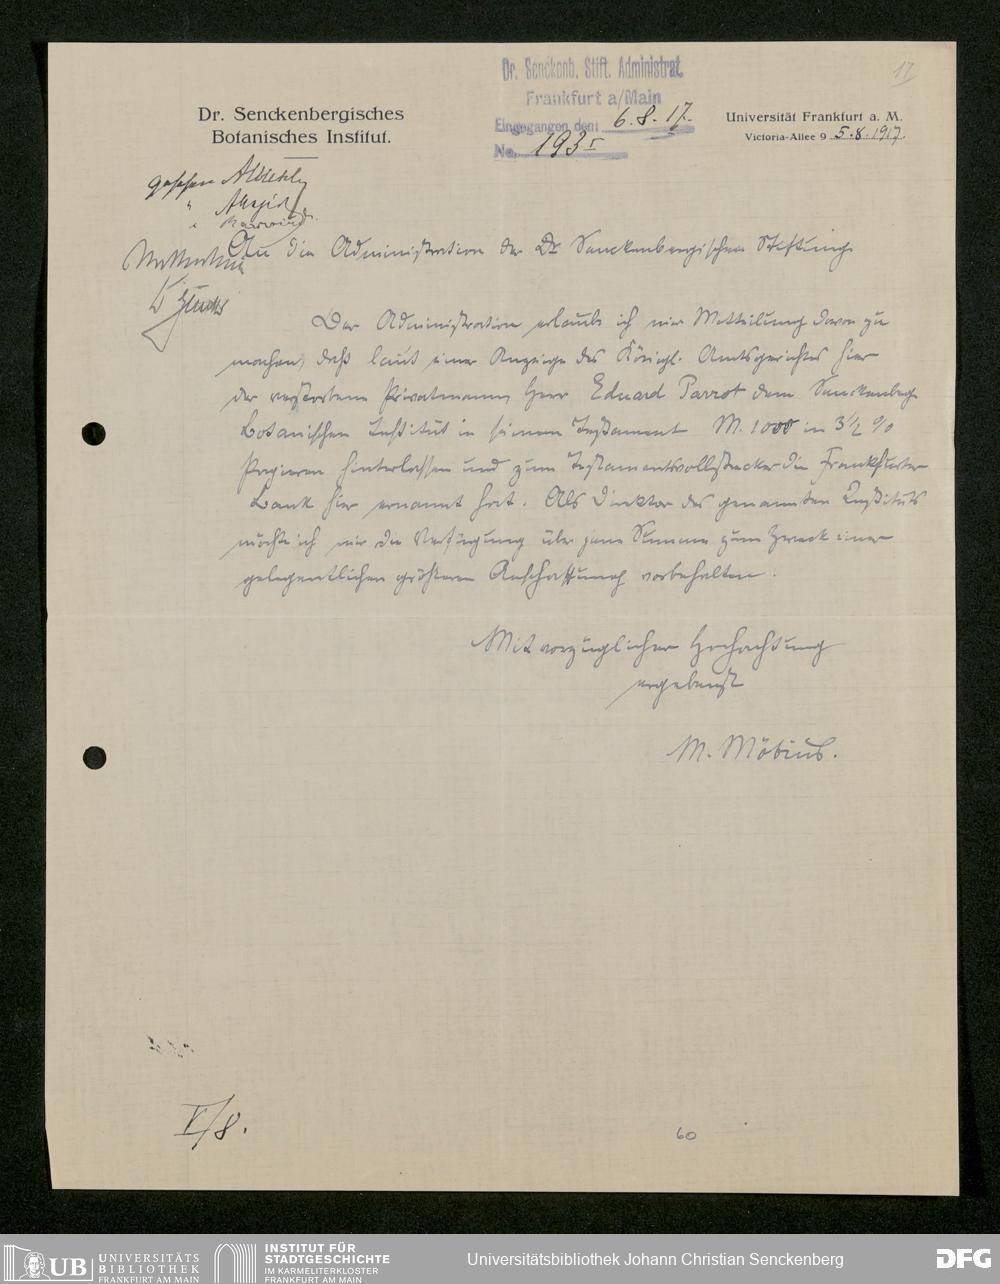 17
Dr. Senckenb. Stift. Administrat.
Frankfurt a/Main
Eingegangen den: 6.8.17.
No. 193 I
Dr. Senckenbergisches
Botanisches Institut.
Universität Frankfurt a. M.
Victoria-Allee 9 5.8.1917.
gesehen
"
"
An die Administration der Dr. Senckenbergischen Stiftung.
Der Administration erlaube ich mir Mitteilung davon zu
machen, daß laut einer Anzeige des Königl. Amtsgerichtes hier
der verstorbene Privatmann Herr Eduard Parrot dem Senckenberg.
Botanischen Institut in seinem Testament M. 1000 in 3 1/2 %
Papieren hinterlassen und zum Testamentsvollstrecker die Frankfurter
Bank hier ernannt hat. Als Direktor des genannten Instituts
möchte ich mir die Verfügung über jene Summe zum Zweck einer
gelegentlichen größeren Anschaffung vorbehalten.
Mit vorzüglicher Hochachtung
ergebenst
M. Möbius.
V/8.
60
UB UNIVERSITÄTS
BIBLIOTHEK
FRANKFURT AM MAIN
INSTITUT FÜR
STADTGESCHICHTE
IM KARMELITERKLOSTER
FRANKFURT AM MAIN
Universitätsbibliothek Johann Christian Senckenberg
DFG